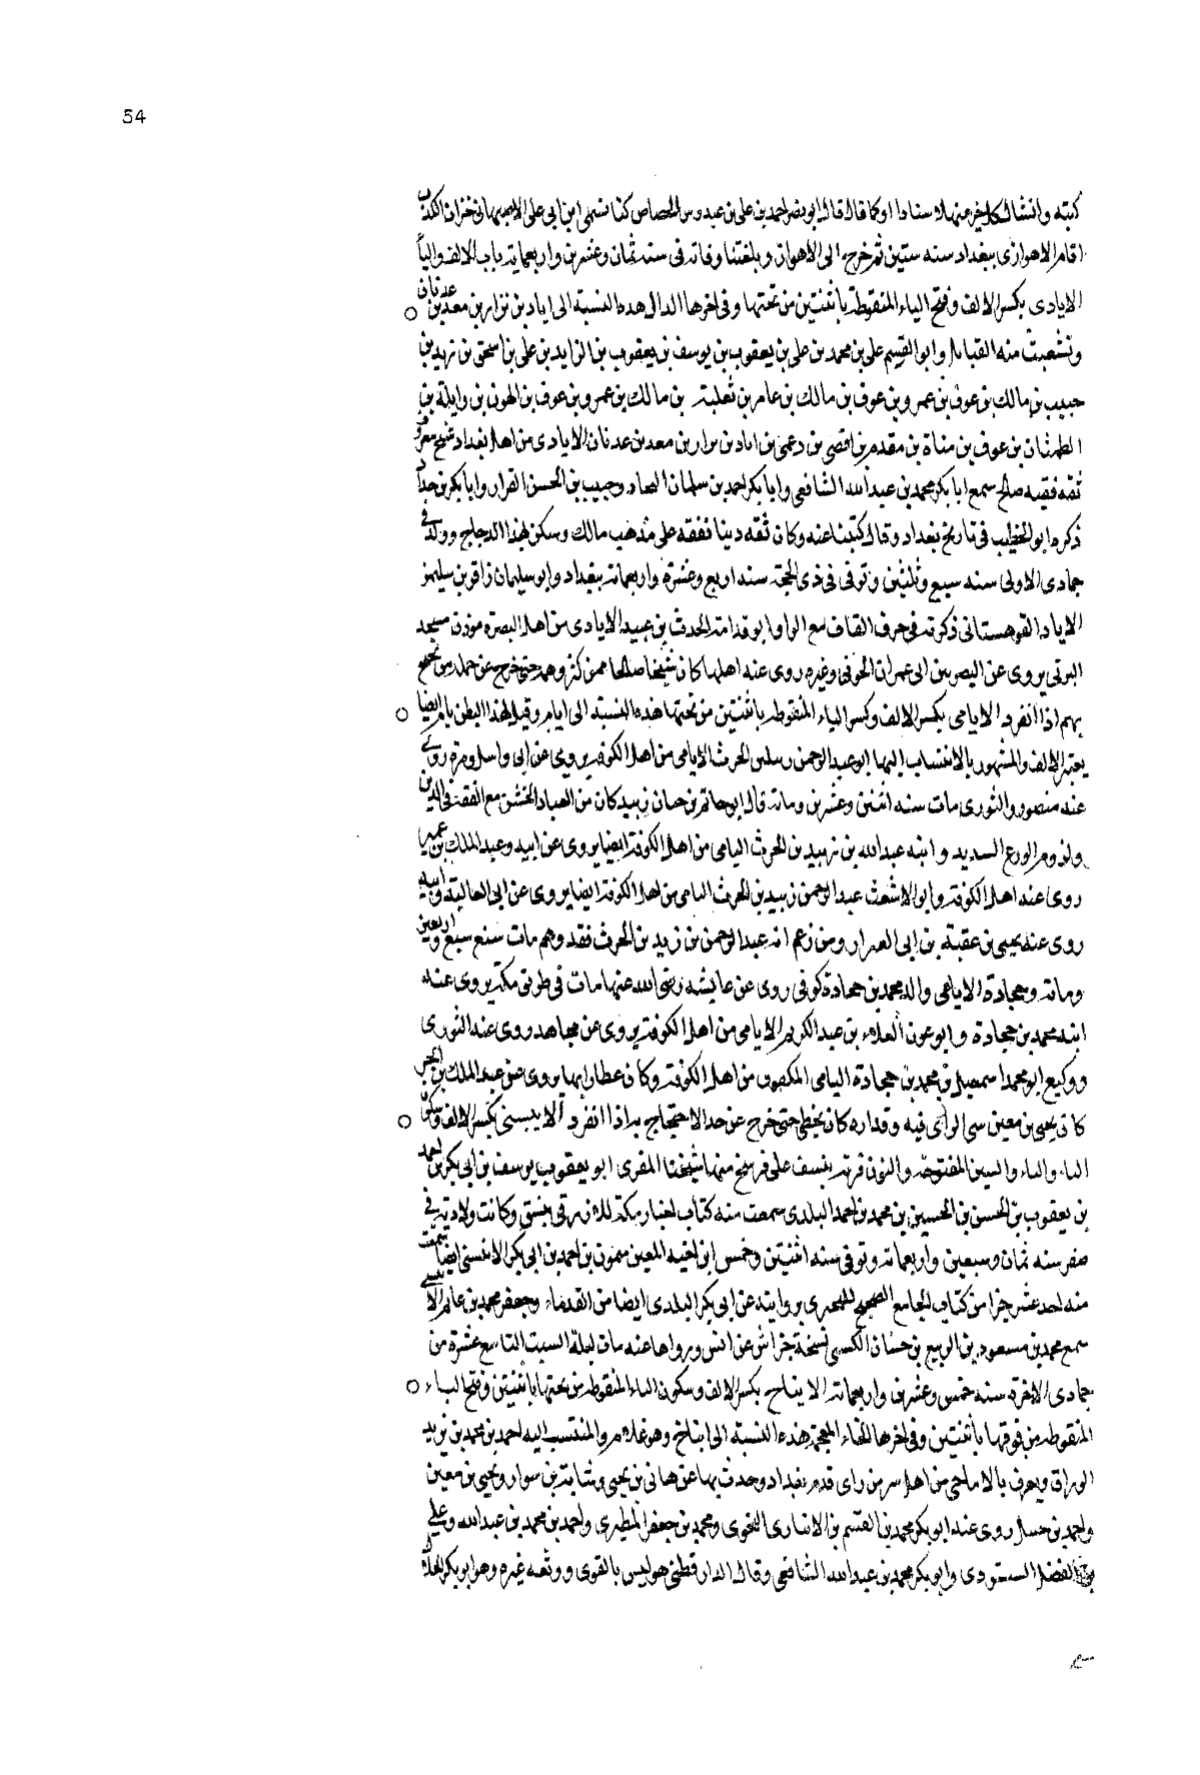 54
كتبه وانشاء لكل خبر منها لاسنادا او كما قال قال ابو نصر احمد بن على بن عبدوس الجصاص كنا نسمى ابن ابى على الاصبهانى جراب الكذب
اقام الاهوازى ببغداد سنه ستين ثم خرج الى الاهواز وبلغتنا وفاته فى سنه ثمان وعشرين واربعمايه باب الالف واليا
الايادى بكسر الالف وفتح الياء المنقوطه باثنتين من تحتها وفى اخرها الدال هذه النسبة الى اياد بن نزار بن معد بن عدنان
وتشعبت منه القبايل وابو القسم على بن محمد بن على بن يعقوب بن يوسف بن يعقوب بن الزايد بن على بن اسحق بن زيد بن
حبيب بن مالك بن عوف بن عمرو بن عوف بن مالك بن عامر بن ثعلبة بن مالك بن عمرو بن عوف بن الهون بن وايلة بن
الطمثان بن عوف بن مناة بن مقدم بن افصى بن دعمى بن اياد بن نزار بن معد بن عدنان الايادى من اهل بغداد شيخ
ثقه فقيه صالح سمع ابا بكر محمد بن عبد الله الشافعى وابا بكر احمد بن سلمان النجاد وحبيب بن الحسن القزاز وابا بكر بن خلاد
ذكره ابو الخطيب فى تاريخ بغداد وقال كتبنا عنه وكان ثقه دينا تفقه على مذهب مالك وسكن نهر الدجاج وولد فى
جمادى الاولى سنه سبع وثلثين وتوفى فى ذى الحجة سنه اربع وعشرة واربعمايه ببغداد وابو سليمان زافر بن سليمن
الاياد القوهستانى ذكرته فى حرف القاف مع الواو ابو قدامة الحرث بن عبيد الايادى من اهل البصرة موذن مسجد
البرتى يروى عن البصريين ابى عمران الجونى وغيره روى عنه اهلها كان شيخا صالحا ممن كثر وهمه حتى خرج عن جملة من يحتج
بهم اذا انفرد الايامى بكسر الالف وكسر الياء المنقوطه باثنتين من تحتها هذه النسبة الى ايام وقيل لهذا البطن يام ايضا
بغير الالف والمشهور بالانتساب اليها ابو عبد الرحمن زبيد بن الحرث الايامى من اهل الكوفة يروى عن ابى وايل ومرة روى
عنه منصور والثورى مات سنه اثنتين وعشرين ومايه قال ابو حاتم بن حبان زبيد كان من العباد الخشن مع الفقه فى الدين
ولزوم الورع السديد وابنه عبد الله بن زبيد بن الحرث اليامى من اهل الكوفة ايضا يروى عن ابيه وعبد الملك بن عمير
روى عنه اهل الكوفة وابو الاشعث عبد الرحمن زبيد بن الحرث اليامى من اهل الكوفة ايضا يروى عن ابى العالية وابيه
روى عنه يحيى بن عقبة بن ابى العيزار ومن زعم انه عبد الرحمن بن زيد بن الحرث فقد وهم مات سنه سبع واربعين
ومايه وجحادة الايامى والد محمد بن جحادة كوفى روى عن عايشه رضى الله عنها مات فى طريق مكة يروى عنه
ابنه محمد بن جحادة وابو عون العلاء بن عبد الكريم الايامى من اهل الكوفة يروى عن مجاهد روى عنه الثورى
ووكيع ابو محمد اسمعيل بن محمد بن جحادة اليامى المكفوف من اهل الكوفة وكان عطارا بها يروى عن عبد الملك بن
كان يحيى بن معين سى الراى فيه وقد اره كان يخطى حتى خرج عن حد الاحتجاج به اذا انفرد الايبسنى بكسر الالف وسكون
الياء والباء والسين المفتوحة والنون قرية بنسف على فرسخ منها شيخنا المقرى ابو يعقوب يوسف بن ابى بكر بن احمد
بن يعقوب بن الحسن بن الحسين بن محمد بن احمد البلدى سمعت منه كتاب اخبار مكة للازرقى بنسف وكانت ولادته فى
صفر سنه ثمان وسبعين واربعمايه وتوفى سنه اثنتين وخمس ابن اخيه المعين ميمون بن احمد بن ابى بكر الابسنى ايضا سمعت
منه احد عشر جزا من كتاب الجامع الصحيح للبجرى بروايته عن ابى بكر البلدى ايضا من القدماء وجعفر محمد بن عامر
سمع محمد بن مسعود بن الربيع بن حسان الكسى نسخة خراش عن انس ورواها عنه مات ليلة السبت التاسع عشرة من
جمادى الاخرة سنه خمس وعشرين واربعمايه الايتاخى بكسر الالف وسكون الياء المنقوطه من تحتها باثنتين وفتح التاء
المنقوطه من فوقها باثنتين وفى اخرها الخاء المعجمة هذه النسبة الى ايتاخ وهو غلام والمنتسب اليه احمد بن محمد بن يزيد
الوراق ويعرف بالاملحى من اهل سر من راى قدم بغداد وحدث بها عن هانى بن يحيى وشبابة بن سوار ويحيى بن معين
واحمد بن حنبل روى عنه ابو بكر محمد بن القسم بن الانبارى النحوى ومحمد بن جعفر المطيرى واحمد بن محمد بن عبد الله وعلى
بن الفضل الستورى وابو بكر محمد بن عبد الله الشافعى وقال الدارقطنى هو ليس بالقوى ووثقه غيره وهو ابو بكر الخلال